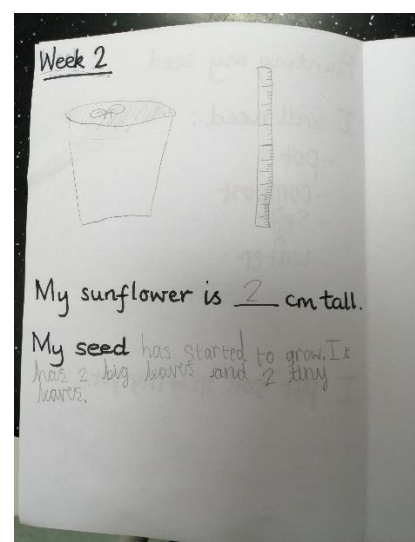 Week 2
My sunflower is 2 cm tall.
My seed has started to grow. It
has 2 big leaves and 2 tiny
leaves.